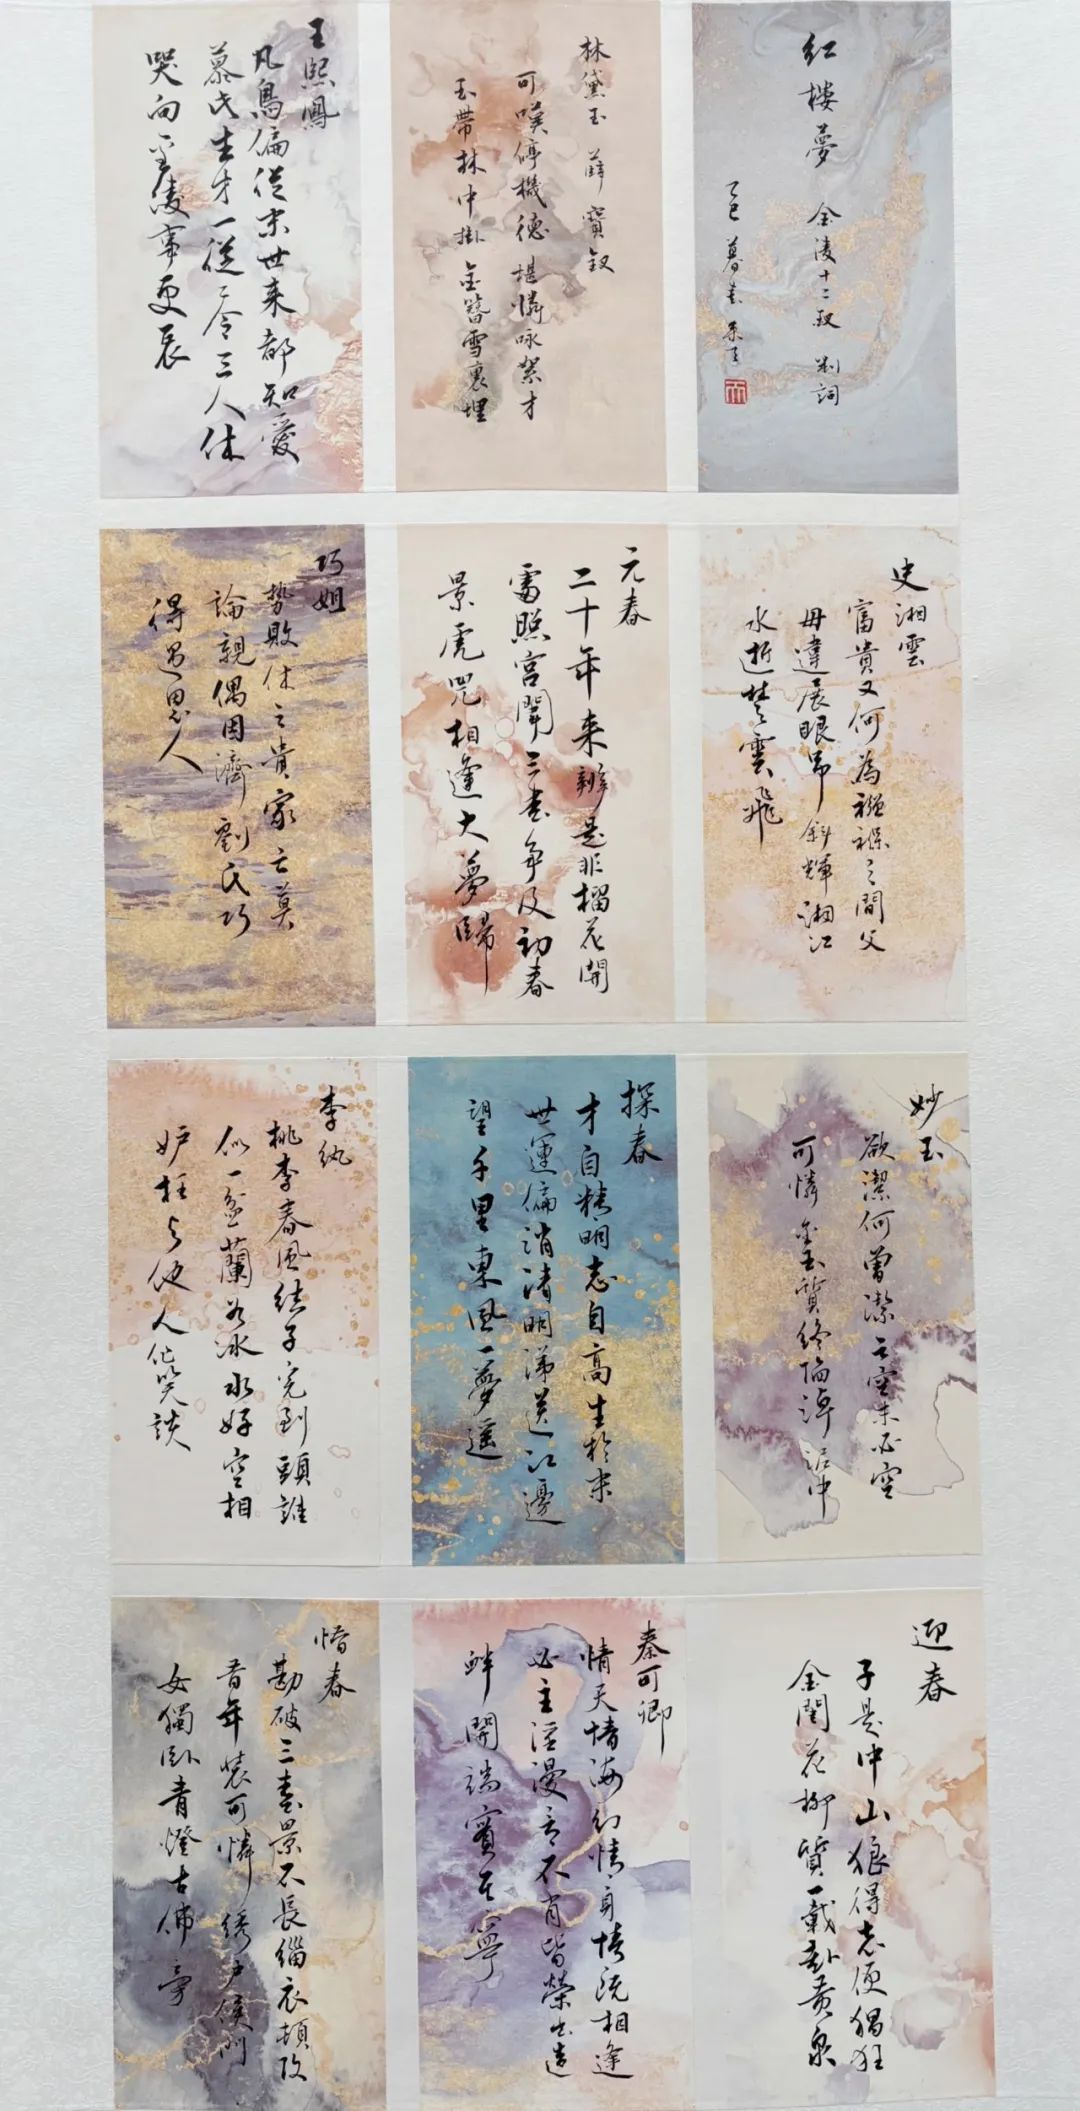 红樓夢 金陵十二釵 判詞
乙巳 暮春
林黛玉 薛寶釵
可嘆停機德 堪憐咏絮才
玉帶林中掛 金簪雪裏埋
王熙鳳
凡鳥偏從末世来都知愛
慕此生才一從二令三人休
哭向金陵事更哀
史湘雲
富貴又何為襁褓之間父
母違展眼吊斜輝湘江
水逝楚雲飛
元春
二十年来辨是非榴花開
處照宫闈三春争及初春
景虎兕相逢大夢歸
巧姐
勢敗休云貴家亡莫
論親偶因濟劉氏巧
得遇恩人
妙玉
欲潔何曾潔云空未必空
可憐金玉質終陷淖泥中
探春
才自精明志自高生於末
世運偏消清明涕送江邊
望千里東風一夢遥
李紈
桃李春風結子完到頭誰
似一盆蘭如冰水好空相
妒枉与他人作笑談
迎春
子是中山狼得志便猖狂
金閨花柳質一載赴黄泉
秦可卿
情天情海幻情身情既相逢
必主淫漫言不肖皆榮出造
衅開端實在寧
惜春
勘破三春景不長缁衣頓改
昔年裝可憐绣户侯門
女獨卧青燈古佛旁